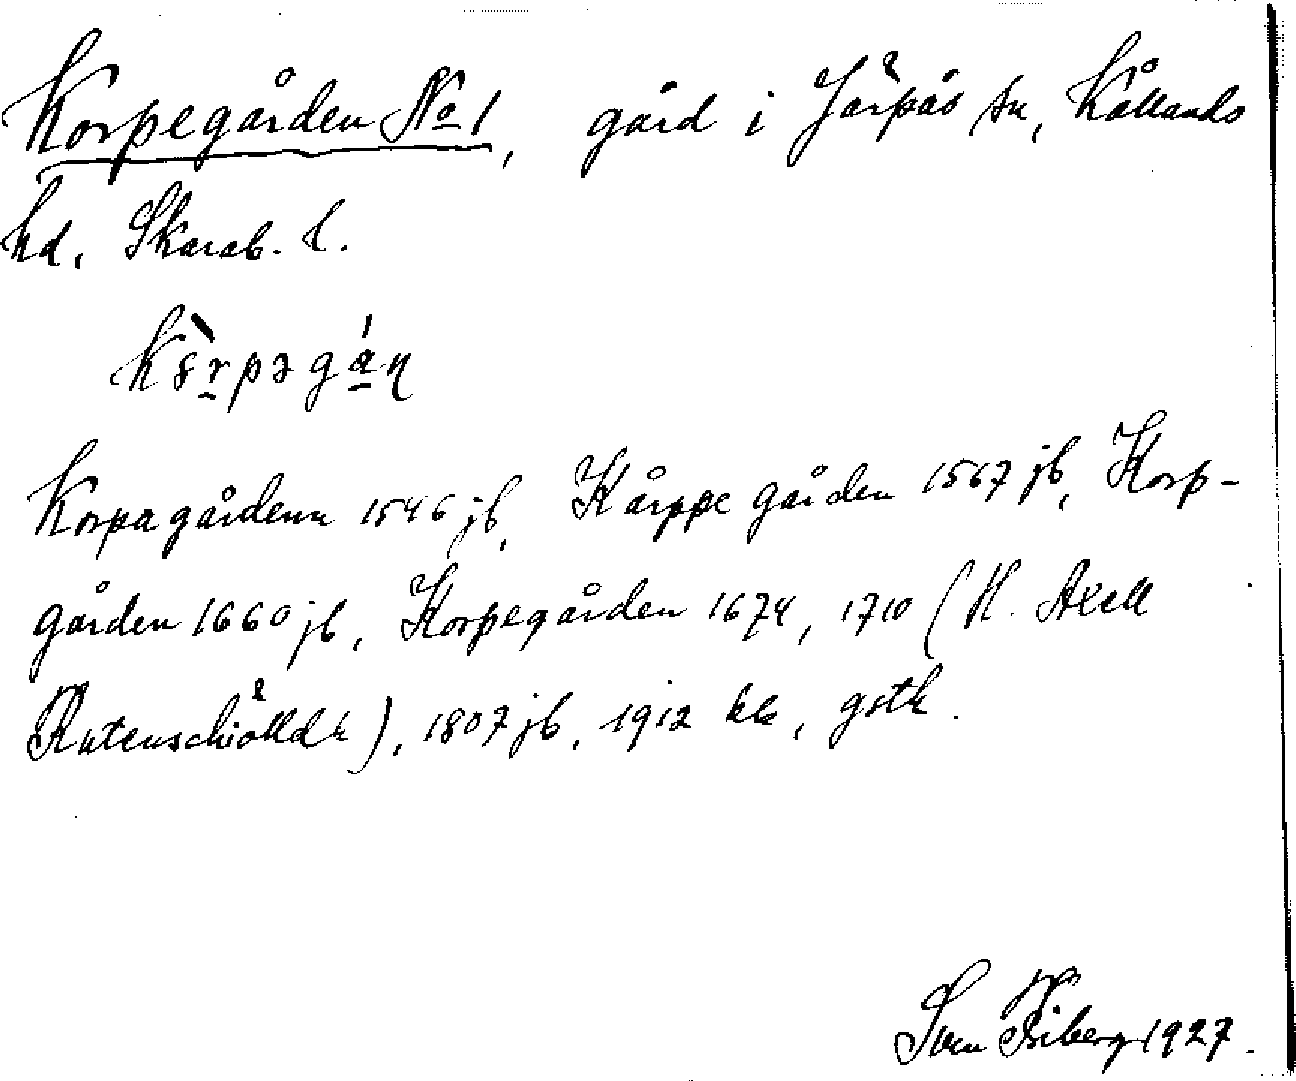 Korpegården No 1, gård i Järpås sn, Kållands
hd, Skarab. l.
Korpagårdenn 1546 jb, Kårppe gården 1567 jb, Korp-
gården 1660 jb, Korpegården 1674, 1710 (H. Axell
Rutenschiölldh), 1807 jb, 1912 kk, gstk.
Sven Friberg 1927.